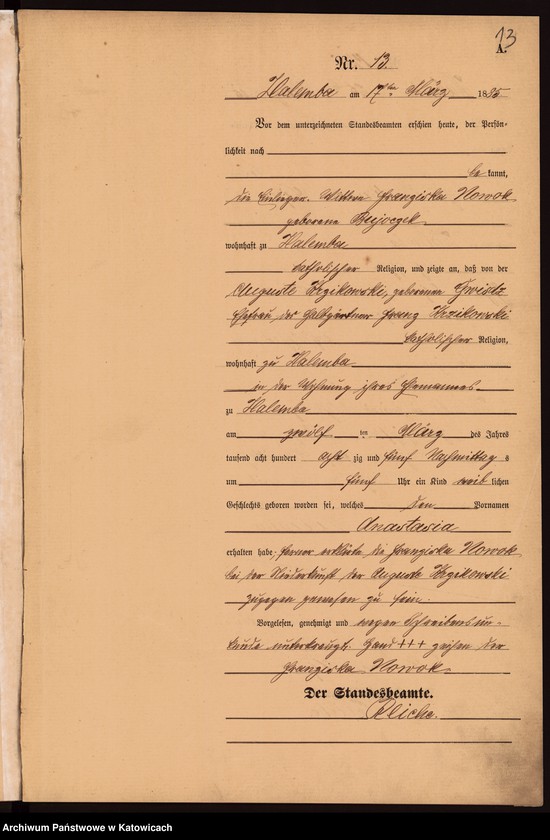 13
A.
Nr. 13
Halemba am 17ten März 1885
Vor dem unterzeichneten Standesbeamten erschien heute, der Persön-
lichkeit nach
be kannt,
die Einlieger-Wittwe Franziska Nowok
geborene
wohnhaft zu Halemba
katholischer Religion, und zeigte an, daß von der
Auguste Krzikowski, geborenen Gwisdz
Ehefrau des Halbgärtner Franz Krzikowski
katholischer Religion,
wohnhaft zu Halemba
in der Wohnung ihres Ehemannes
zu Halemba
am zwölf ten März des Jahres
tausend acht hundert acht zig und fünf Nachmittag s
um fünf Uhr ein Kind weib lichen
Geschlechts geboren worden sei, welches den Vornamen
Anastasia
erhalten habe; ferner erklärte die Franziska Nowok
bei der Niederkunft der Auguste Krzikowski
zugegen gewesen zu sein.
Vorgelesen, genehmigt und wegen Schreibensun-
kunde unterkreuzt. Hand +++ zeichen der
Franziska Nowok
Der Standesbeamte.
Kliche.
Archiwum Państwowe w Katowicach